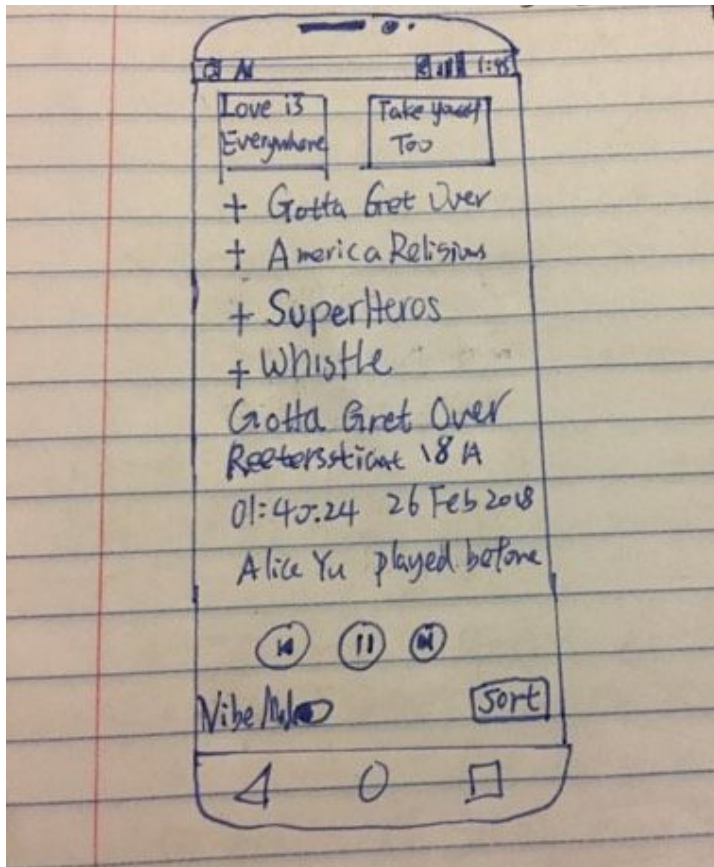 N 1:45
Love is Everywhere
Take Too
+ Gotta Get Over
+ America Religius
+ SuperHeros
+ Whistle
Gotta Gret Over
18 A
01:45:24 26 Feb 2018
Alice Yu played before
Vibe
Sort